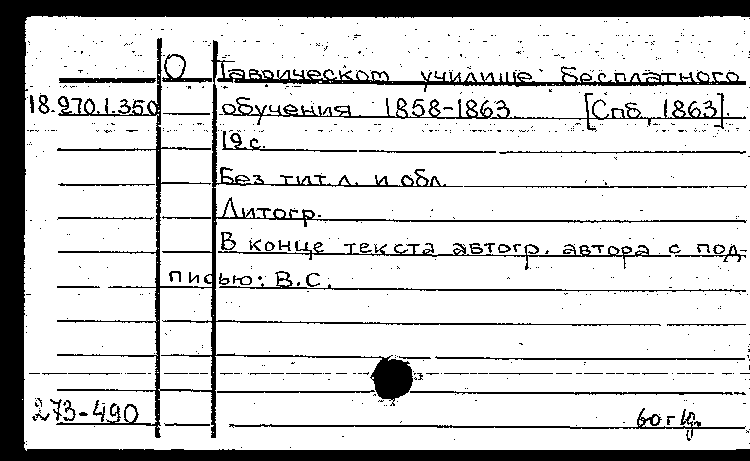 О Таврическом училище бесплатного
18.270.1.350 обучения 1858-1863 [Спб, 1863].
12 с.
Без тит. л. и обл.
Литогр.
В конце текста автогр. автора с под-
писью: В.С.
273-490